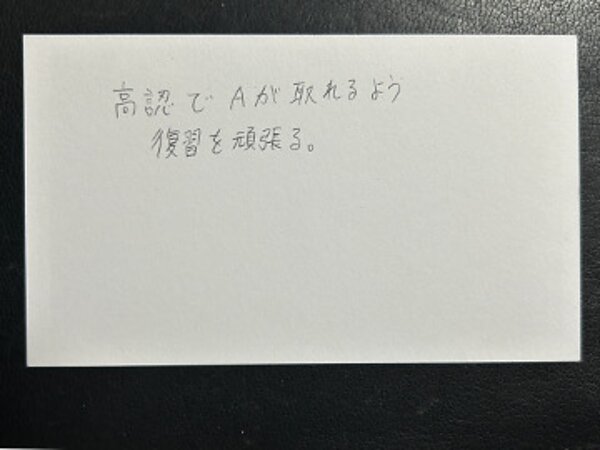 高認でAが取れるよう
復習を頑張る。